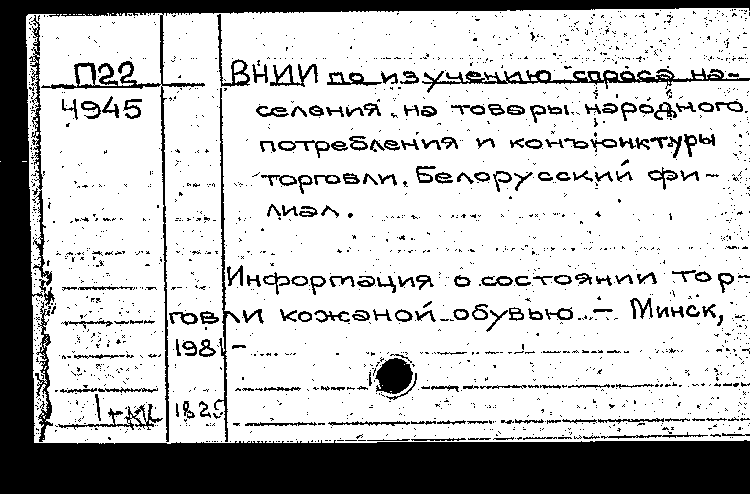 П22
4945
ВНИИ по изучению спроса на-
селения на товары народного
потребления и конъюнктуры
торговли. Белорусский фи-
лиал.
Информация о состоянии тор-
говли кожаной обувью. – Минск,
1981 –
1825